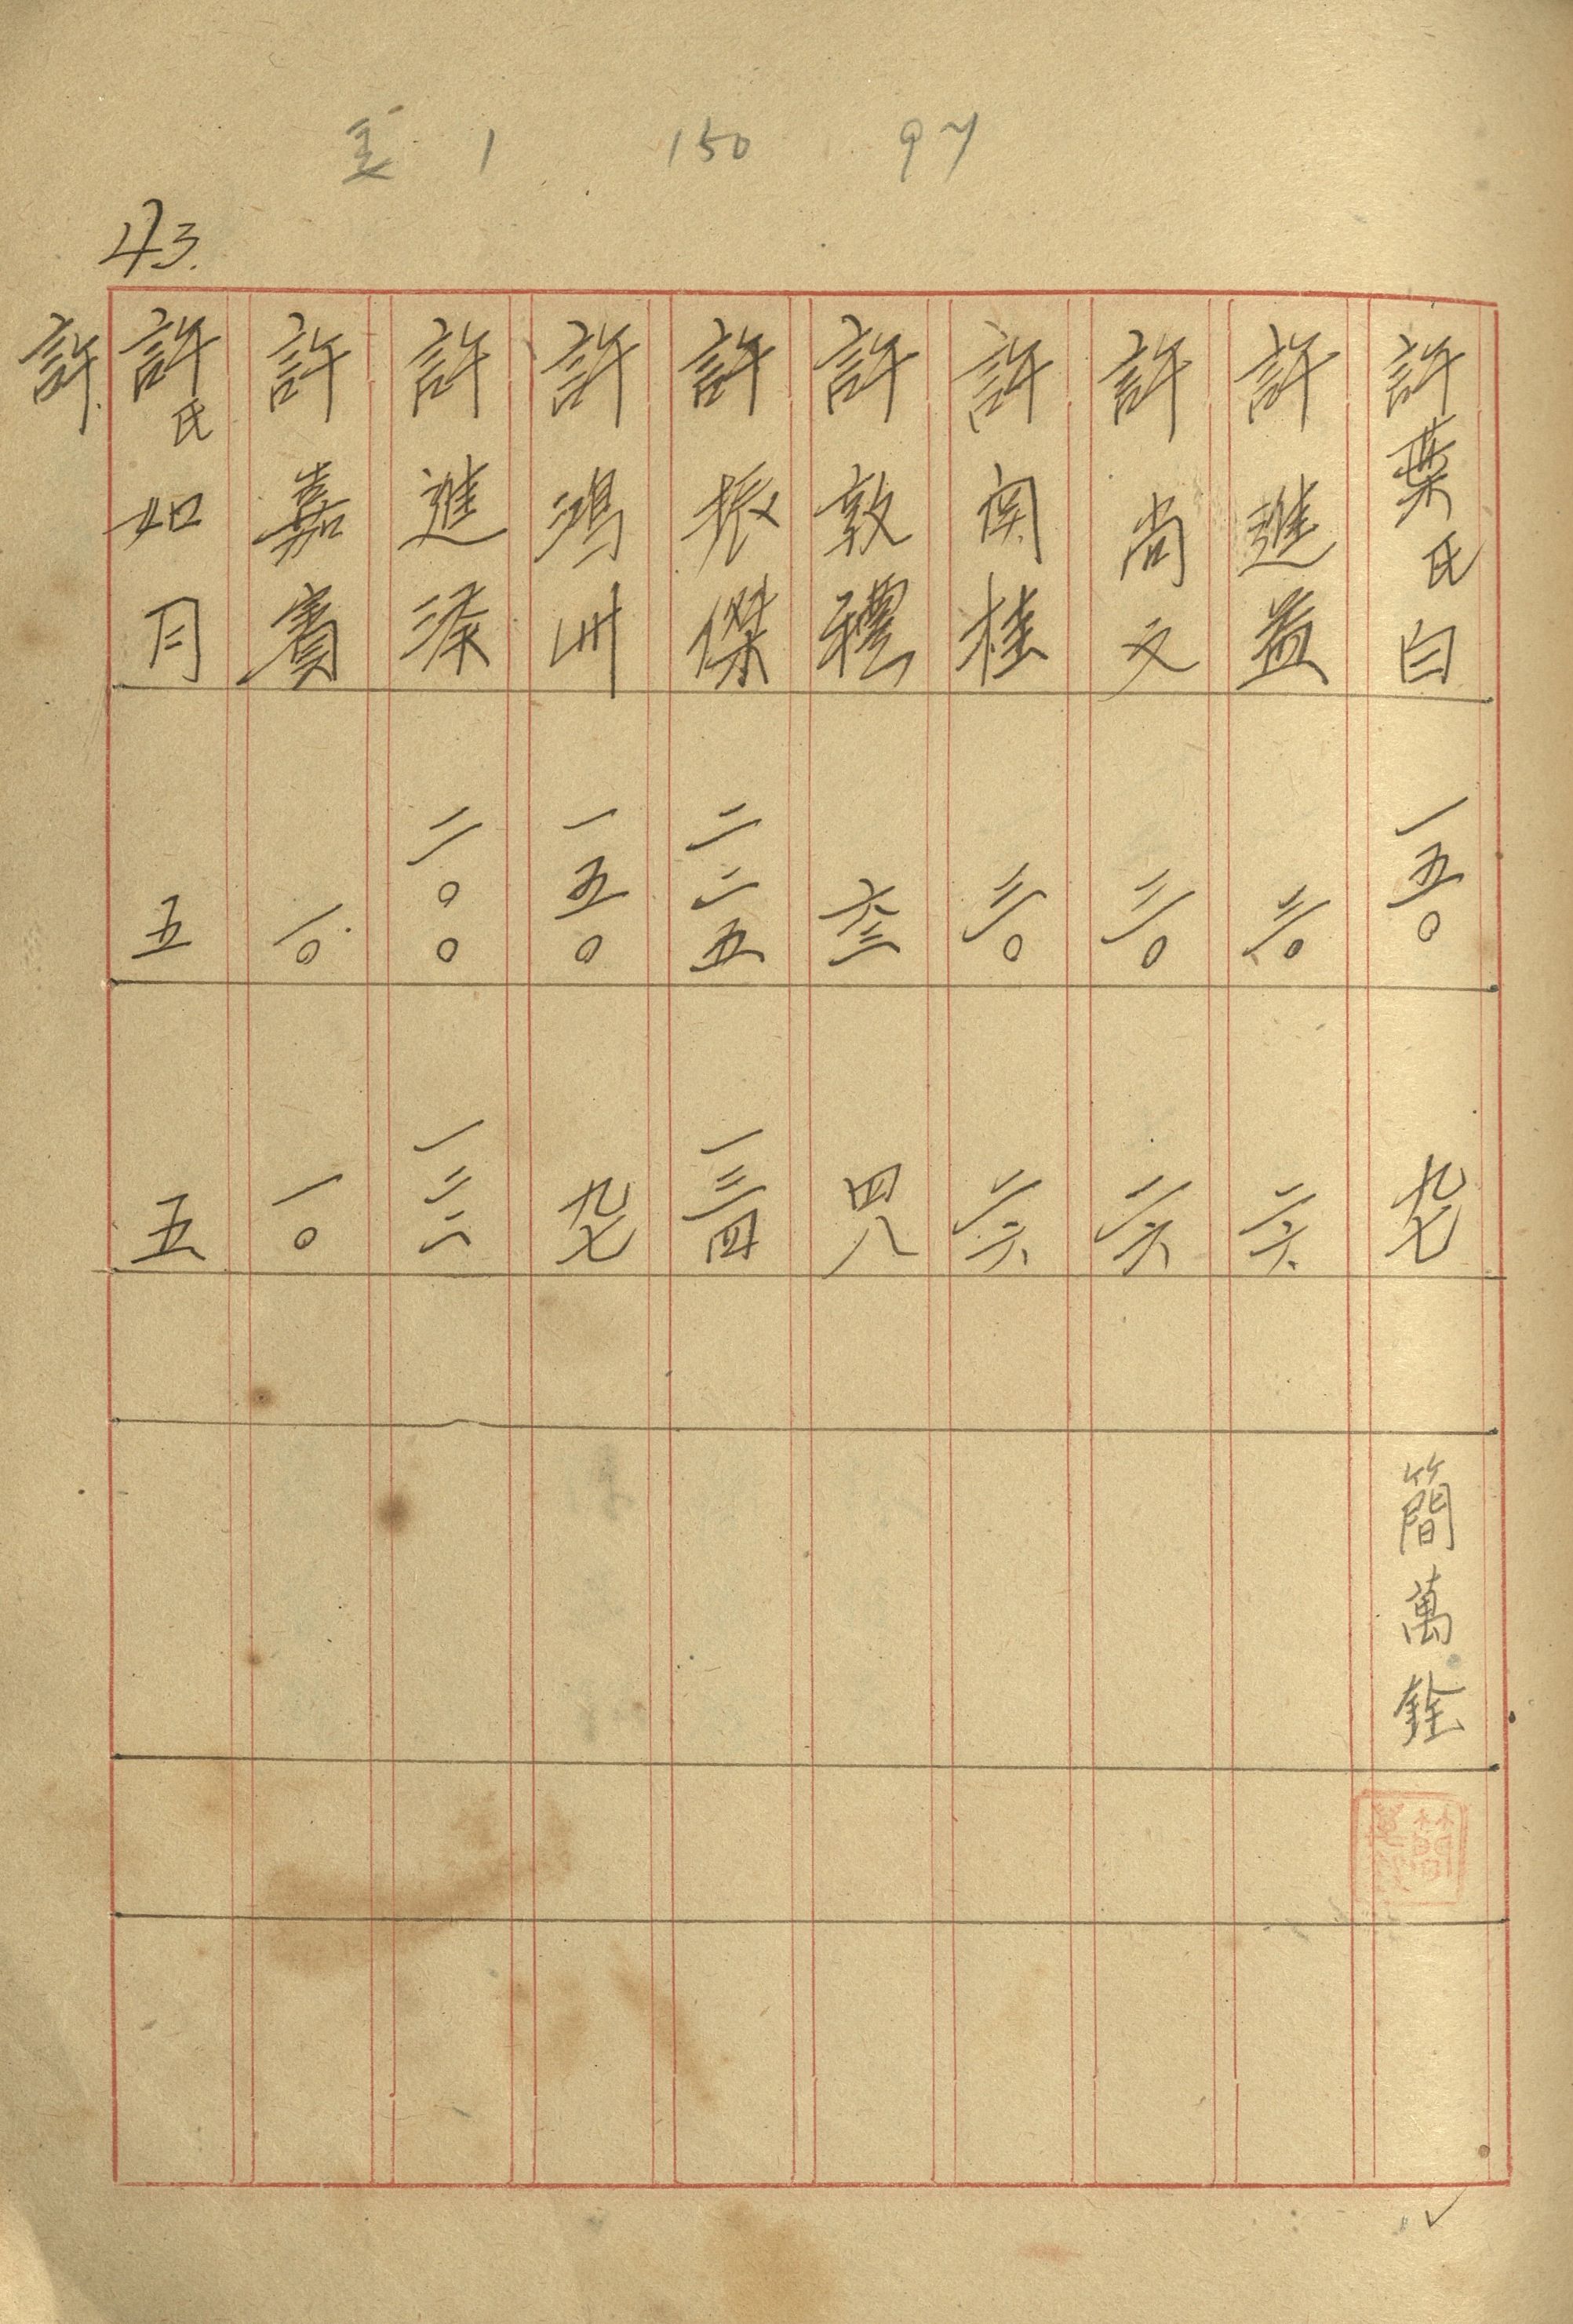 1 150 97
43.
許葉氏白 一五〇 九七 簡萬銓
許進益 三〇 二六
許尚文 三〇 二六
許 桂 三〇 二六
許敦禮 六三 四八
許振傑 二二五 一三四
許鴻洲 一五〇 九七
許進添 二〇〇 一二二
許嘉賓 一〇 一〇
許氏如月 五 五
許